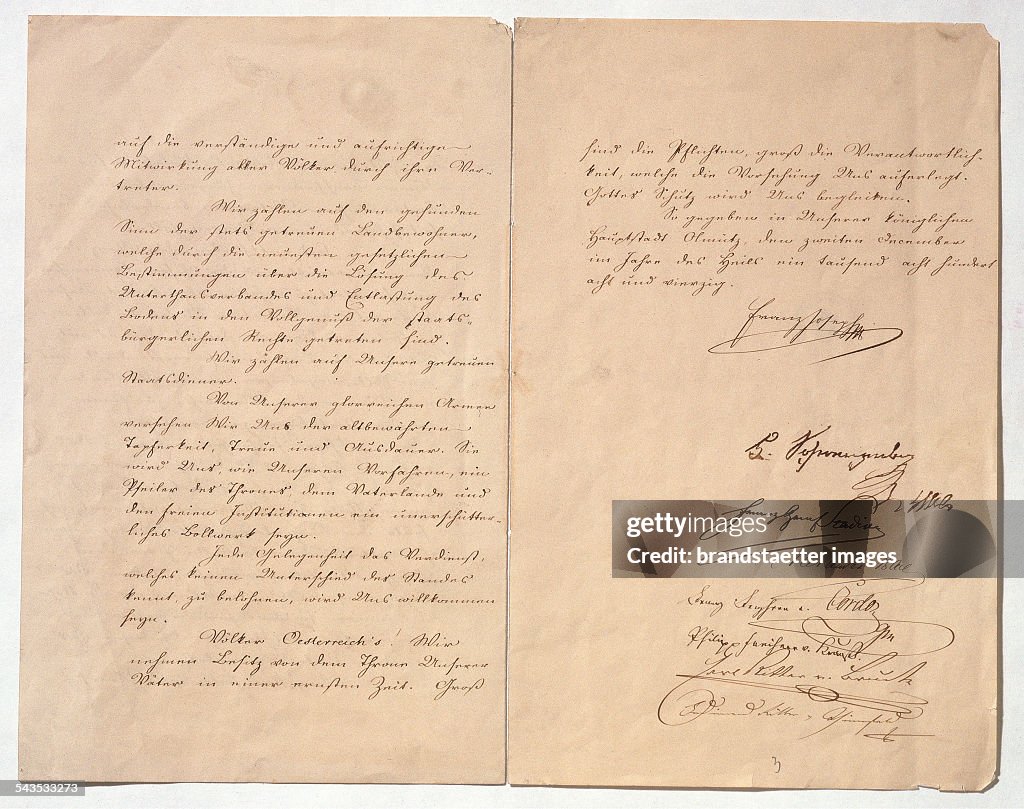 auf die verständige und aufrichtige
Mitwirkung aller Völker durch ihre Ver-
treter.
Wir zählen auf den gesunden
Sinn der stets getreuen Landbewohner,
welche durch die neuesten gesetzlichen
Bestimmungen über die Lösung des
Unterthansverbandes und Entlastung des
Bodens in den Vollgenuß der staats-
bürgerlichen Rechte getreten sind.
Wir zählen auf Unsere getreuen
Staatsdiener.
Von Unserer glorreichen Armee
versehen Wir Uns der altbewährten
Tapferkeit, Treue und Ausdauer. Sie
wird Uns, wie Unseren Vorfahren, ein
Pfeiler des Thrones, dem Vaterlande und
den freien Institutionen ein unerschütter-
liches Bollwerk seyn.
Jede Gelegenheit des Verdienst,
welches keinen Unterschied des Standes
kennt, zu belohnen, wird Uns willkommen
seyn.
Völker Oesterreich's! Wir
nehmen Besitz von dem Throne Unserer
Väter in einer ernsten Zeit. Groß
sind die Pflichten, groß die Verantwortlich-
keit, welche die Vorsehung Uns auferlegt.
Gottes Schutz wird Uns begleiten.
So gegeben in Unserer königlichen
Hauptstadt Olmütz, den zweiten December
im Jahre des Heils ein tausend acht hundert
acht und vierzig.
Franz Joseph
F. Schwarzenberg
Franz Graf Stadion
Cordon
Philipp Freiherr v. Krauß.
Carl Ritter v. Bruck
Ferdinand Ritter v. Thinnfeld
3
gettyimages®
brandstaetter images
543533273